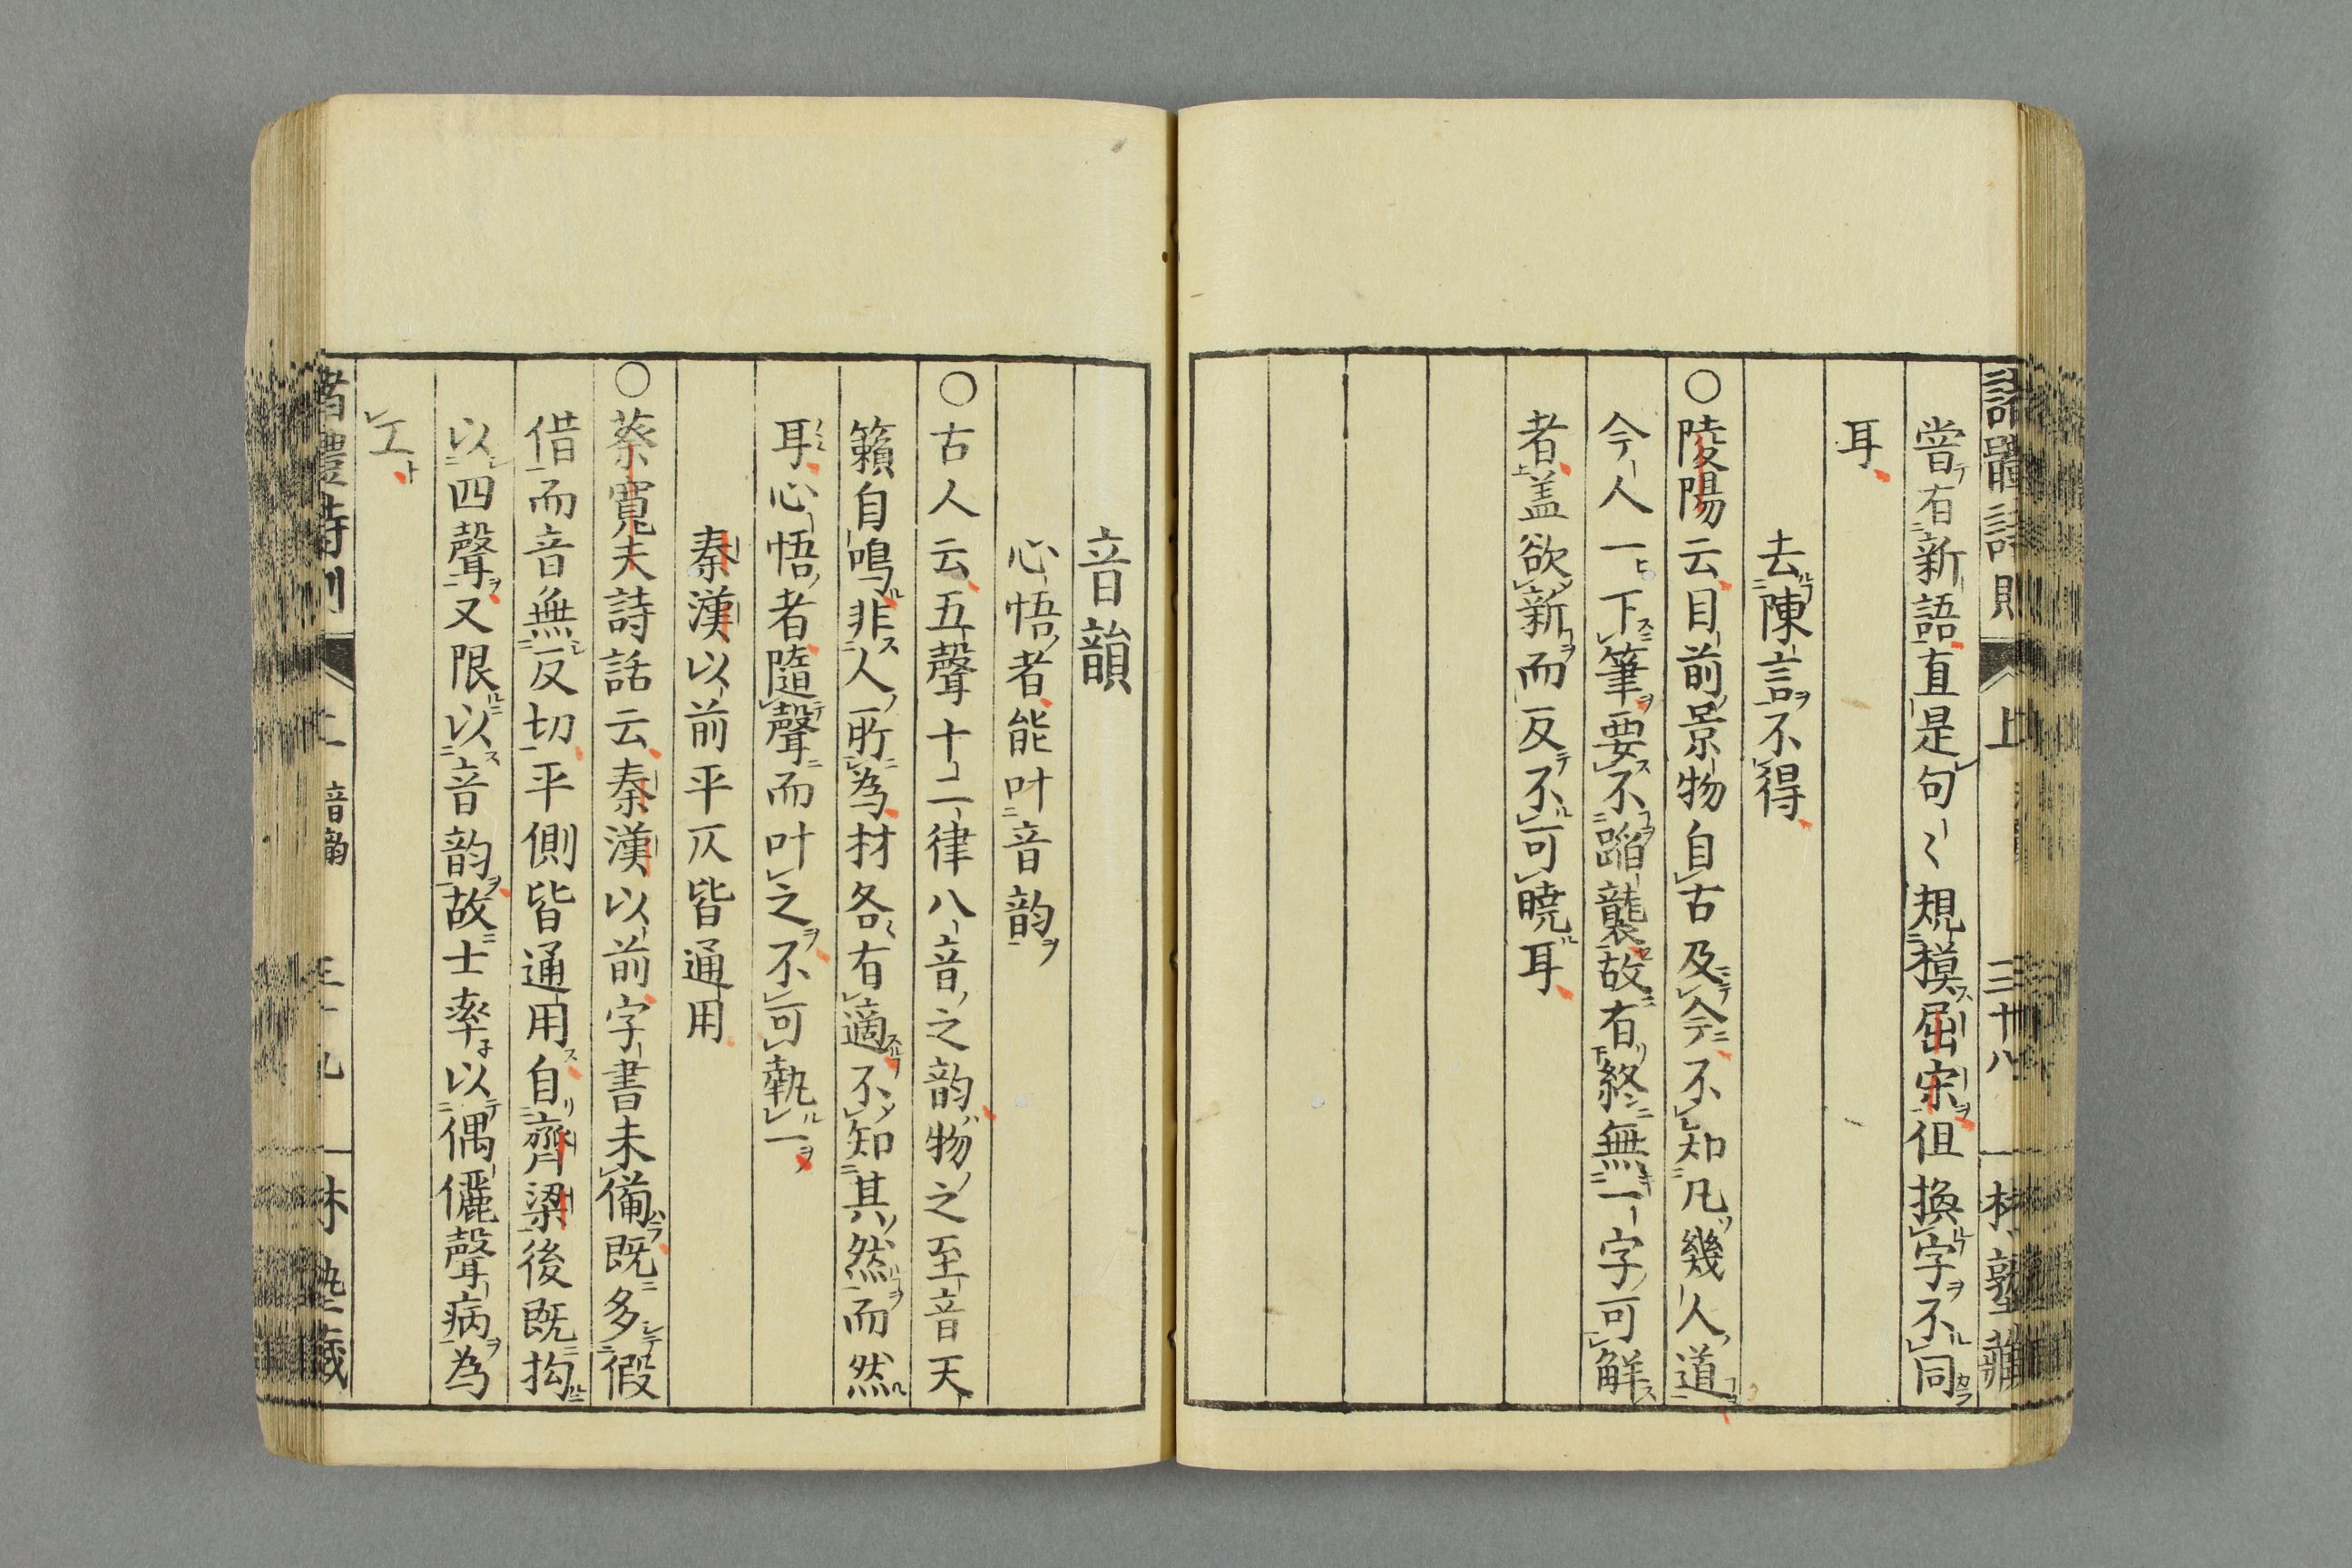 嘗有新語直是句〻規模屈宋但換字不同
耳
去陳言不得
○陵陽云目前景物自古及今不知凡幾人道
今人一下筆要不蹈襲故有終無一字可鮮
者盖欲新而反不可曉耳
上
三十八
音韻
心悟者能叶音韵
○古人云五聲十二律八音之韵物之至音天
籟自鳴非人所為材各有適不知其然而然
耳心悟者隨聲而叶之不可執一
秦漢以前平仄皆通用
○蔡寬夫詩話云秦漢以前字書未備既多假
借而音無反切平側皆通用自齊梁後既拘
以四聲又限以音韵故士率以偶儷聲病為
工